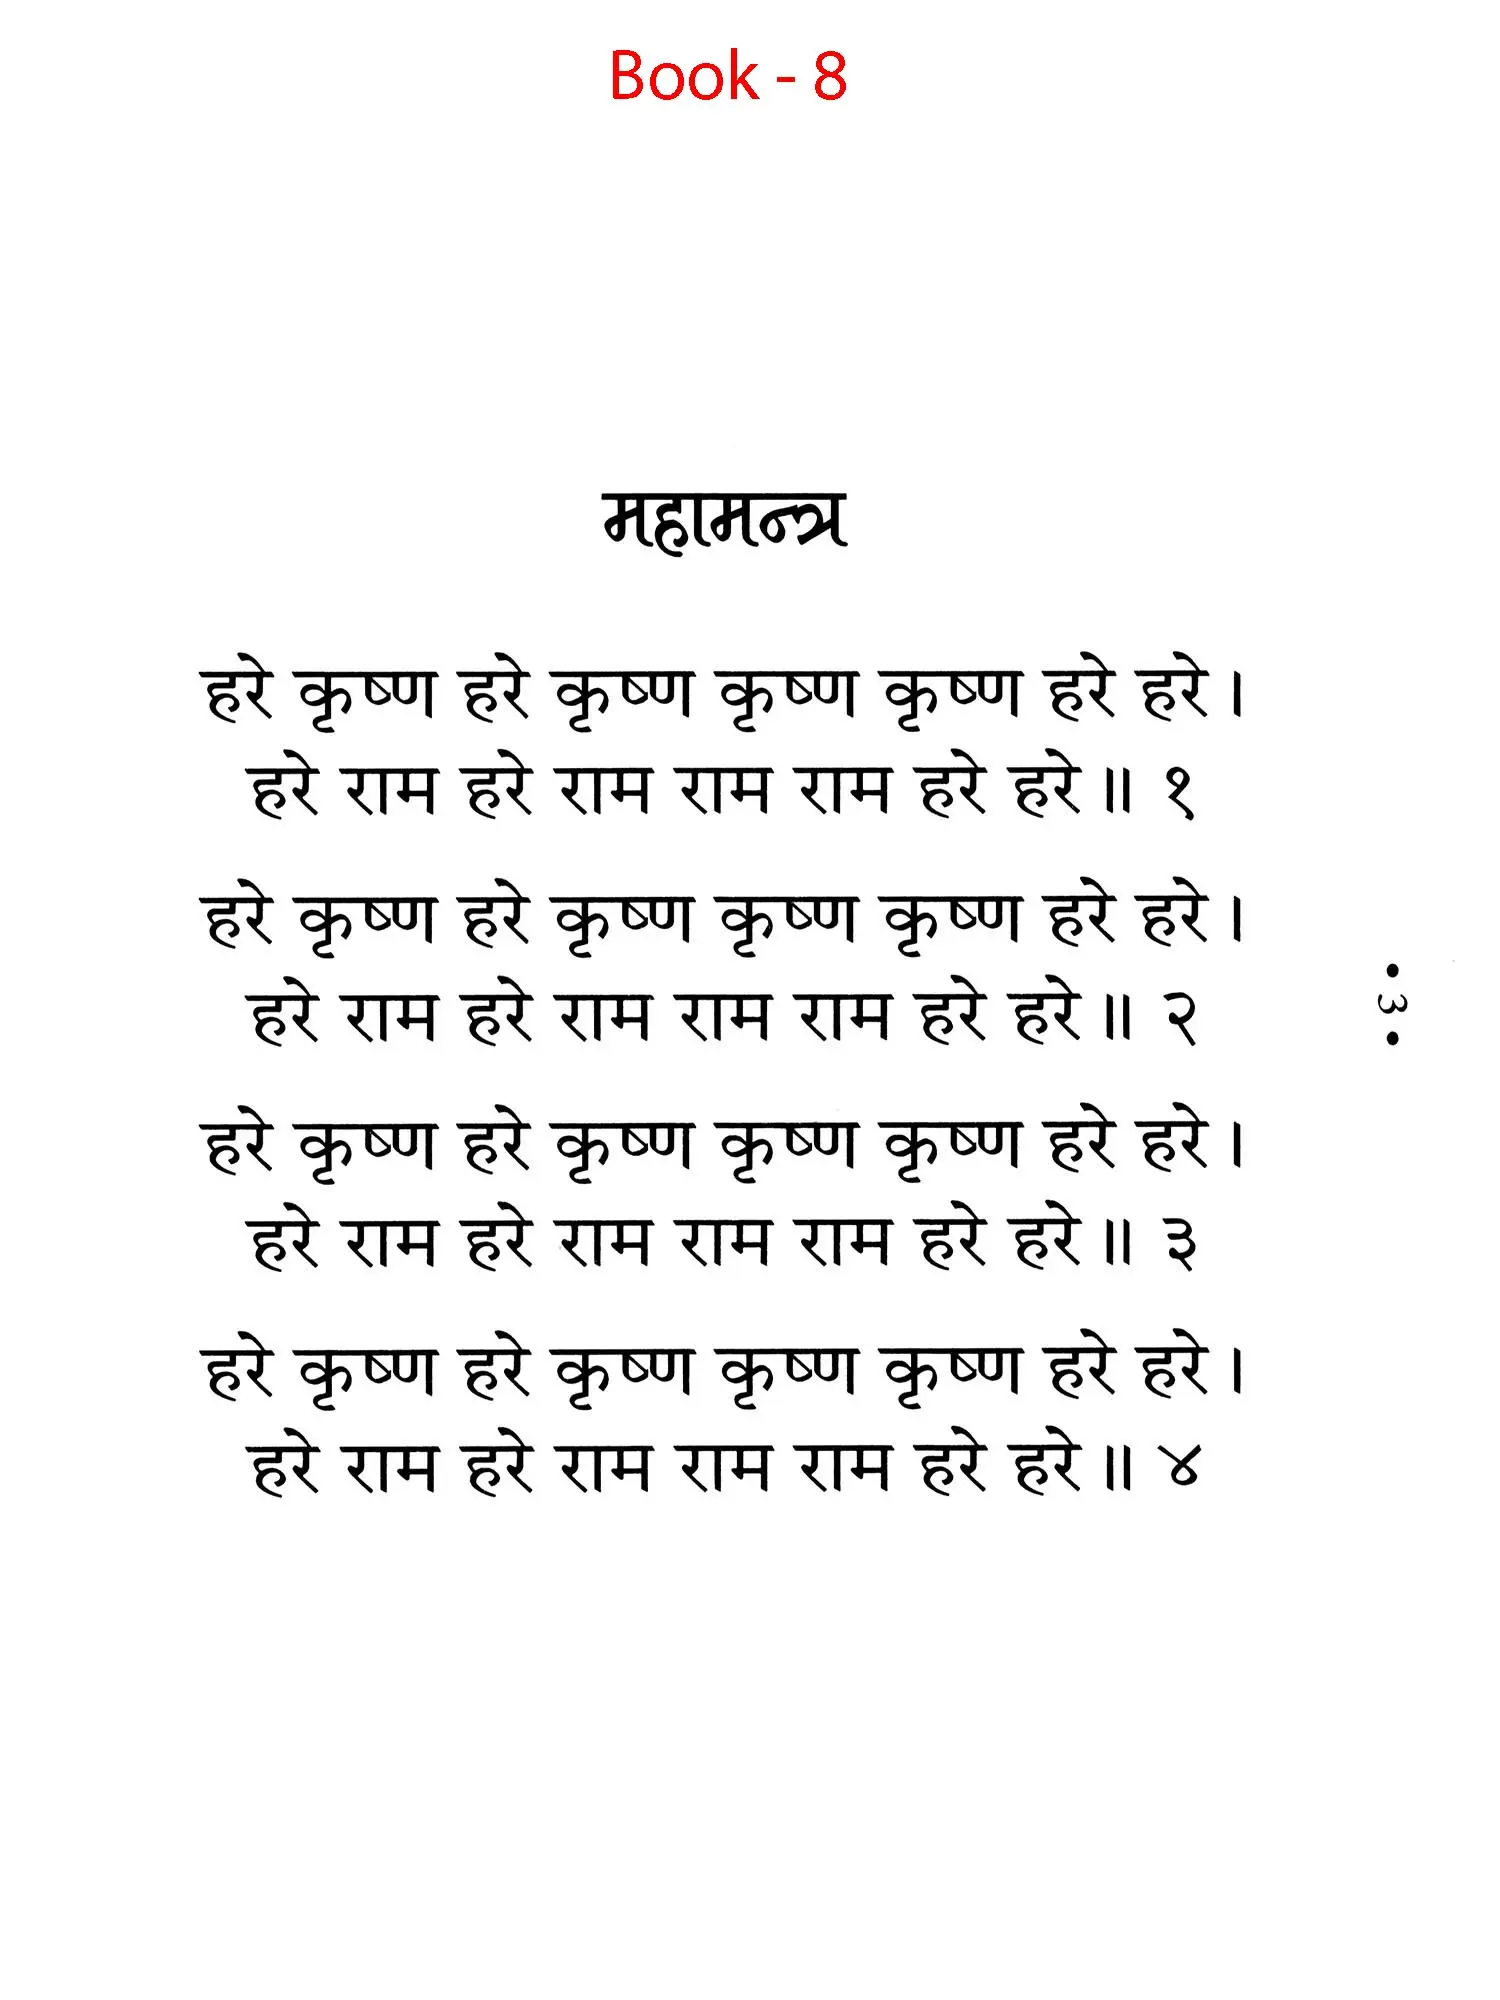 Book - 8
महामन्त्र
हरे कृष्ण हरे कृष्ण कृष्ण कृष्ण हरे हरे।
हरे राम हरे राम राम राम हरे हरे॥ १
हरे कृष्ण हरे कृष्ण कृष्ण कृष्ण हरे हरे।
हरे राम हरे राम राम राम हरे हरे॥ २
• 3 •
हरे कृष्ण हरे कृष्ण कृष्ण कृष्ण हरे हरे।
हरे राम हरे राम राम राम हरे हरे॥ ३
हरे कृष्ण हरे कृष्ण कृष्ण कृष्ण हरे हरे।
हरे राम हरे राम राम राम हरे हरे॥ ४